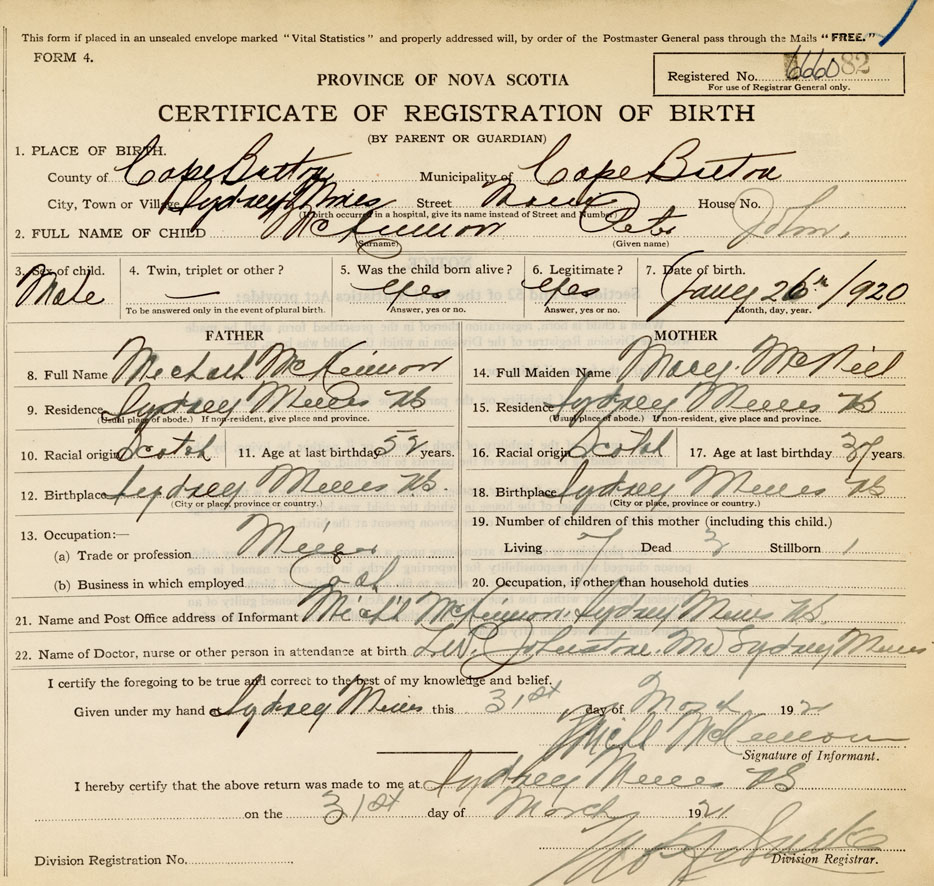 This form if placed in an unsealed envelope marked "Vital Statistics" and properly addressed will, by order of the Postmaster General pass through the Mails "FREE."
FORM 4.
Registered No. 82
For use of Registrar General only.
PROVINCE OF NOVA SCOTIA
CERTIFICATE OF REGISTRATION OF BIRTH
(BY PARENT OR GUARDIAN)
1. PLACE OF BIRTH.
County of Cape Breton Municipality of Cape Breton
City, Town or Village Sydney Mines Street House No.
(If birth occurred in a hospital, give its name instead of Street and Number)
2. FULL NAME OF CHILD McKinnon Peter John.
(Surname) (Given name)
3. Sex of child. 4. Twin, triplet or other? 5. Was the child born alive? 6. Legitimate? 7. Date of birth.
Male — Yes Yes Jany 26th/1920
To be answered only in the event of plural birth. Answer, yes or no. Answer, yes or no. Month, day, year.
FATHER
8. Full Name Michael McKinnon
9. Residence Sydney Mines NS
(Usual place of abode.) If non-resident, give place and province.
10. Racial origin Scotch 11. Age at last birthday 52 years.
12. Birthplace Sydney Mines NS.
(City or place, province or country.)
13. Occupation:—
(a) Trade or profession Miner
(b) Business in which employed Coal
MOTHER
14. Full Maiden Name Mary McNeil
15. Residence Sydney Mines NS
(Usual place of abode.) If non-resident, give place and province.
16. Racial origin Scotch 17. Age at last birthday 37 years.
18. Birthplace Sydney Mines NS
(City or place, province or country.)
19. Number of children of this mother (including this child.)
Living 7 Dead 3 Stillborn 1
20. Occupation, if other than household duties
21. Name and Post Office address of Informant Mich'l McKinnon. Sydney Mines NS.
22. Name of Doctor, nurse or other person in attendance at birth Johnstone. MD Sydney Mines
I certify the foregoing to be true and correct to the best of my knowledge and belief.
Given under my hand at Sydney Mines this 31st day of 192
McKinnon
Signature of Informant.
I hereby certify that the above return was made to me at Sydney Mines NS
on the 31st day of March 1921
Division Registration No.
Division Registrar.